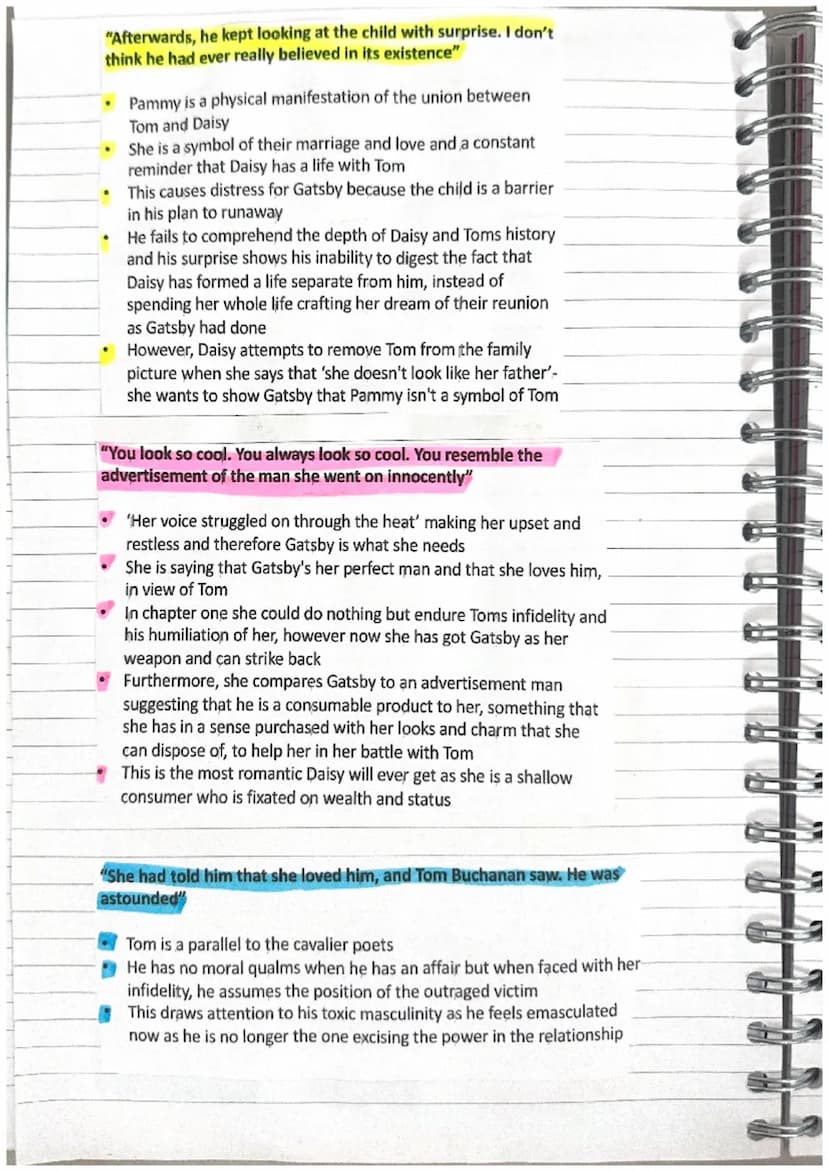 “Afterwards, he kept looking at the child with surprise. I don’t
think he had ever really believed in its existence”
• Pammy is a physical manifestation of the union between
Tom and Daisy
• She is a symbol of their marriage and love and a constant
reminder that Daisy has a life with Tom
• This causes distress for Gatsby because the child is a barrier
in his plan to runaway
• He fails to comprehend the depth of Daisy and Toms history
and his surprise shows his inability to digest the fact that
Daisy has formed a life separate from him, instead of
spending her whole life crafting her dream of their reunion
as Gatsby had done
• However, Daisy attempts to remove Tom from the family
picture when she says that ‘she doesn't look like her father’-
she wants to show Gatsby that Pammy isn't a symbol of Tom
“You look so cool. You always look so cool. You resemble the
advertisement of the man she went on innocently”
• ‘Her voice struggled on through the heat’ making her upset and
restless and therefore Gatsby is what she needs
• She is saying that Gatsby's her perfect man and that she loves him,
in view of Tom
• In chapter one she could do nothing but endure Toms infidelity and
his humiliation of her, however now she has got Gatsby as her
weapon and can strike back
• Furthermore, she compares Gatsby to an advertisement man
suggesting that he is a consumable product to her, something that
she has in a sense purchased with her looks and charm that she
can dispose of, to help her in her battle with Tom
• This is the most romantic Daisy will ever get as she is a shallow
consumer who is fixated on wealth and status
“She had told him that she loved him, and Tom Buchanan saw. He was
astounded”
• Tom is a parallel to the cavalier poets
• He has no moral qualms when he has an affair but when faced with her
infidelity, he assumes the position of the outraged victim
• This draws attention to his toxic masculinity as he feels emasculated
now as he is no longer the one excising the power in the relationship